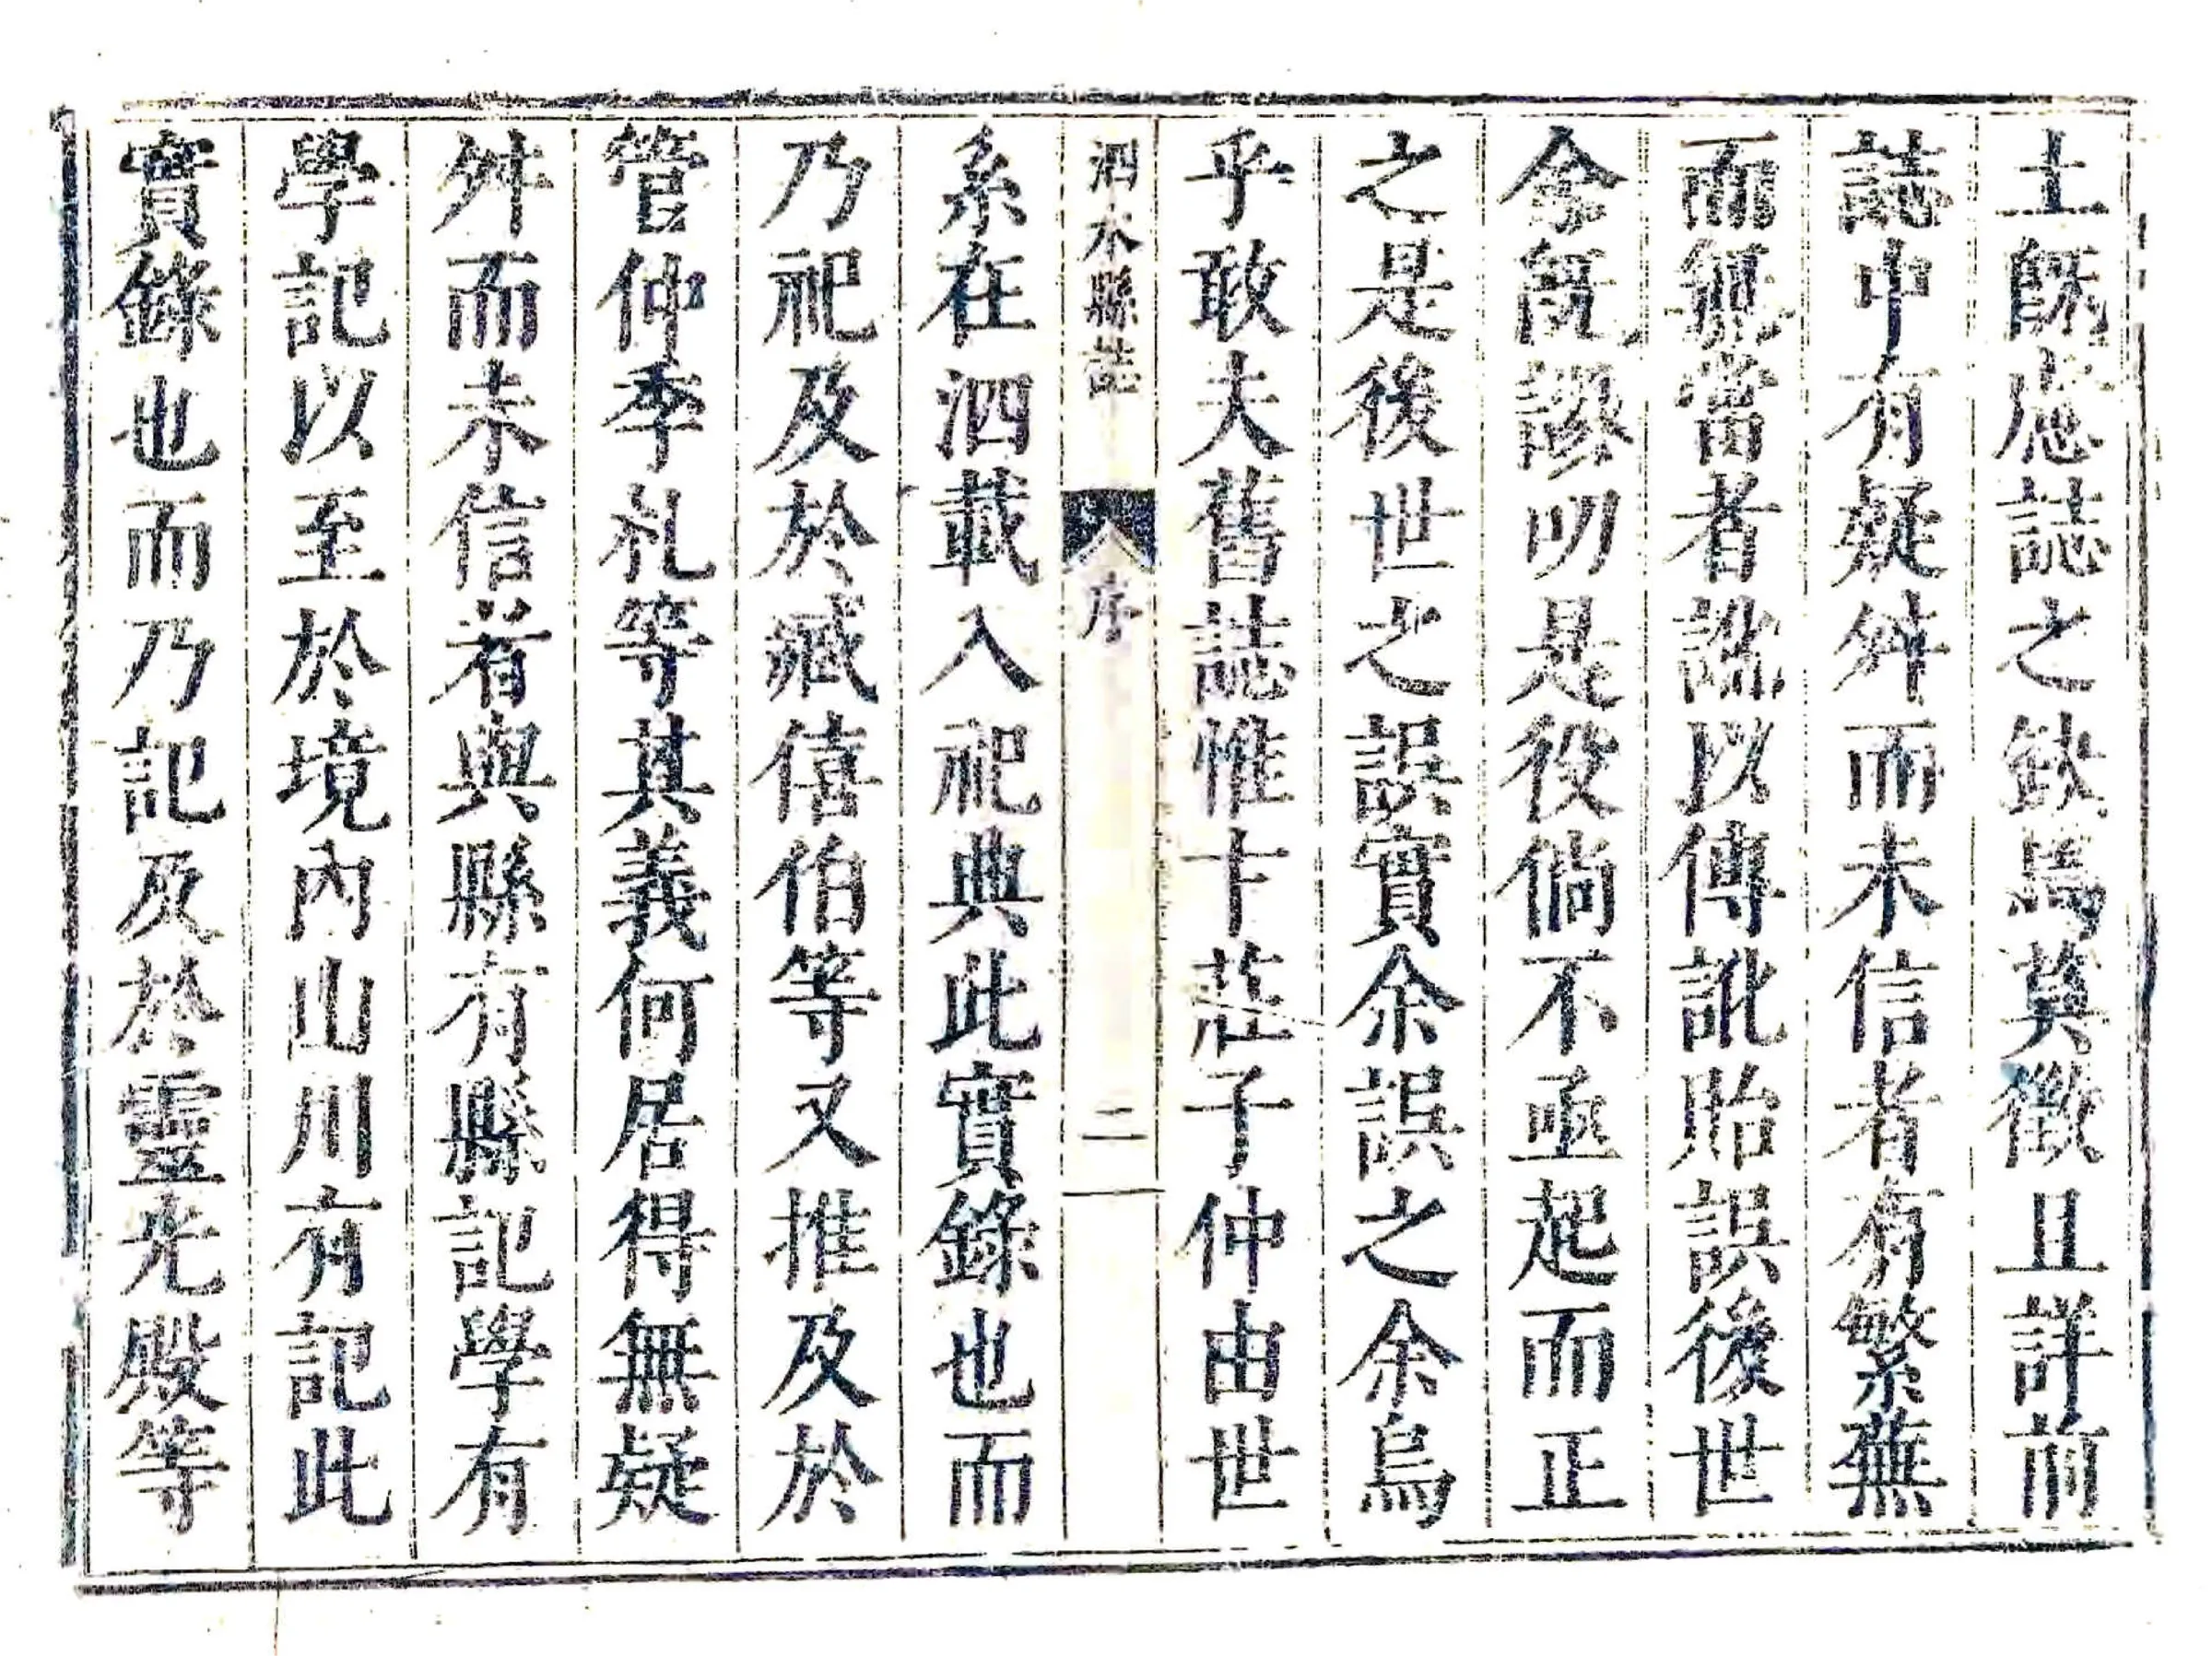 土旣應誌之缺焉莫徵且詳前
誌中有疑舛而未信者有繁蕪
而無當者訛以傳訛貽誤後世
今旣謬叨是役倘不亟起而正
之是後世之誤實余誤之余烏
乎敢夫舊誌惟卞莊子仲由世
泗水縣誌 序 二
系在泗載入祀典此實錄也而
乃祀及於臧僖伯等又推及於
管仲季札等其義何居得無疑
舛而未信者與縣有縣記學有
學記以至於境內山川有記此
實錄也而乃記及於靈光殿等